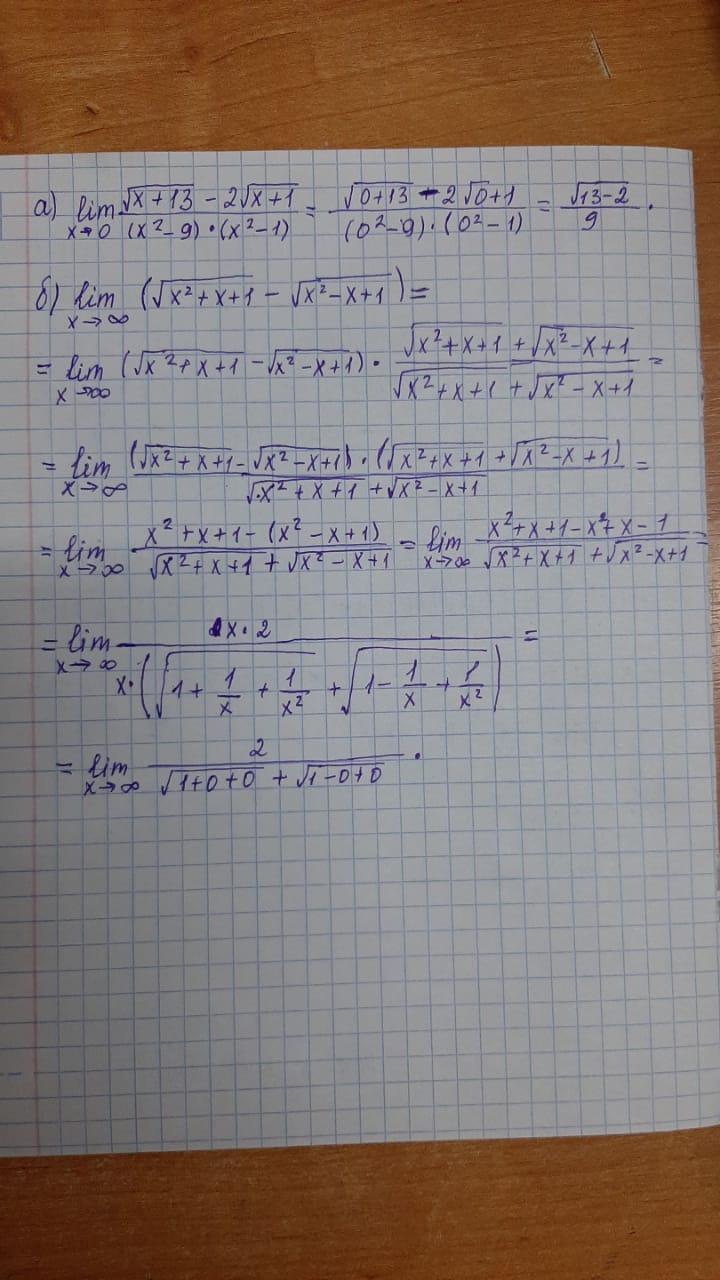 а) lim x→0 (√(x+13) - 2√(x+1)) / ((x²-9)·(x²-1)) = (√(0+13) - 2√0+1) / ((0²-9)·(0²-1)) = √(13-2) / 9 .
б) lim x→∞ (√(x²+x+1) - √(x²-x+1)) =
= lim x→∞ (√(x²+x+1) - √(x²-x+1)) · (√(x²+x+1) + √(x²-x+1)) / (√(x²+x+1) + √(x²-x+1)) =
= lim x→∞ ((√(x²+x+1) - √(x²-x+1)) · (√(x²+x+1) + √(x²-x+1))) / (√(x²+x+1) + √(x²-x+1)) =
= lim x→∞ (x²+x+1-(x²-x+1)) / (√(x²+x+1) + √(x²-x+1)) = lim x→∞ (x²+x+1-x²+x-1) / (√(x²+x+1) + √(x²-x+1)) =
= lim x→∞ x·2 / (x·(√(1+1/x+1/x²) + √(1-1/x+1/x²))) =
= lim x→∞ 2 / (√(1+0+0) + √(1-0+0)) .